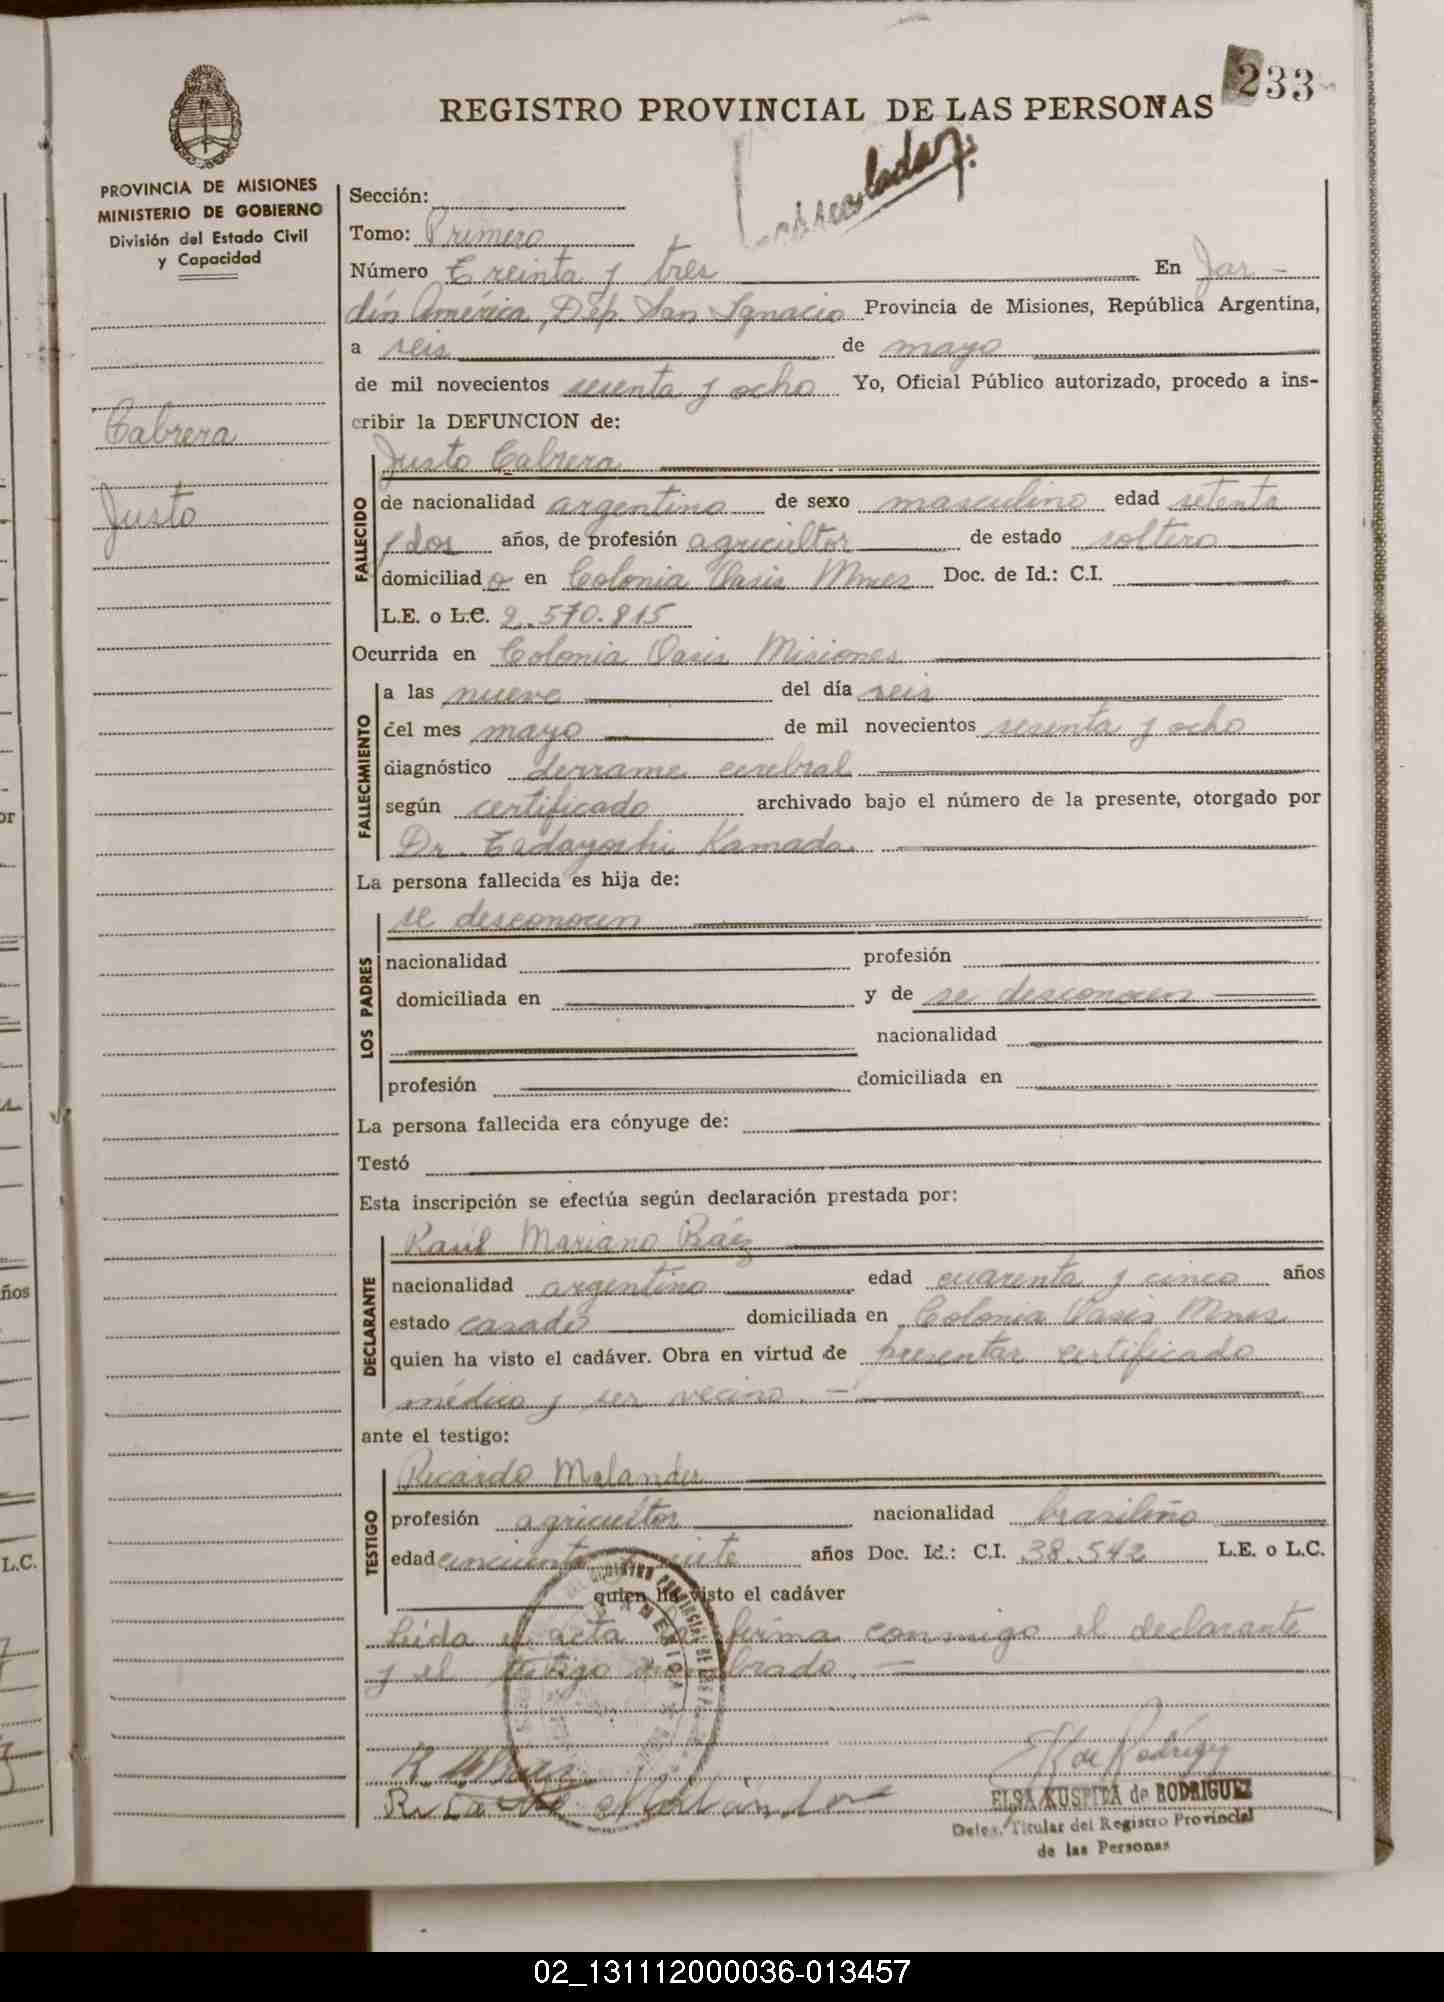 233
REGISTRO PROVINCIAL DE LAS PERSONAS
PROVINCIA DE MISIONES
MINISTERIO DE GOBIERNO
División del Estado Civil
y Capacidad
Cabrera
Justo
Sección:
Tomo: Primero
Número Treinta y tres En Jar-
dín América, Dep. San Ignacio Provincia de Misiones, República Argentina,
a seis de mayo
de mil novecientos sesenta y ocho Yo, Oficial Público autorizado, procedo a ins-
cribir la DEFUNCION de:
Justo Cabrera
FALLECIDO
de nacionalidad argentino de sexo masculino edad setenta
y dos años, de profesión agricultor de estado soltero
domiciliado en Colonia Oasis Mnes Doc. de Id.: C.I.
L.E. o L.C. 2.570.815
Ocurrida en Colonia Oasis Misiones
FALLECIMIENTO
a las nueve del día seis
del mes mayo de mil novecientos sesenta y ocho
diagnóstico derrame cerebral
según certificado archivado bajo el número de la presente, otorgado por
Dr. Tadayoshi Kamada.
La persona fallecida es hija de:
LOS PADRES
se desconocen
nacionalidad profesión
domiciliada en y de se desconocen
nacionalidad
profesión domiciliada en
La persona fallecida era cónyuge de:
Testó
Esta inscripción se efectúa según declaración prestada por:
DECLARANTE
Raúl Mariano Báez
nacionalidad argentino edad cuarenta y cinco años
estado casado domiciliada en Colonia Oasis Mnes.
quien ha visto el cadáver. Obra en virtud de presentar certificado
médico y ser vecino. -
ante el testigo:
TESTIGO
Ricardo Melander
profesión agricultor nacionalidad brasileño
edad cincuenta y siete años Doc. Id.: C.I. 38.542 L.E. o L.C.
quien ha visto el cadáver
Leída el acta la firma conmigo el declarante
y el testigo nombrado. -
ELSA KUSPITA de RODRIGUEZ
Deleg. Titular del Registro Provincial
de las Personas
02_131112000036-013457